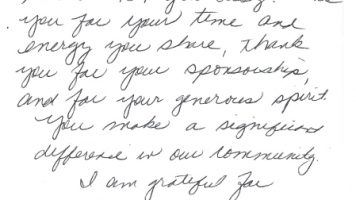 you for your time and
energy you share, thank
you for your sponsorship,
and for your generous spirit.
You make a significant
difference in our community.
I am grateful for